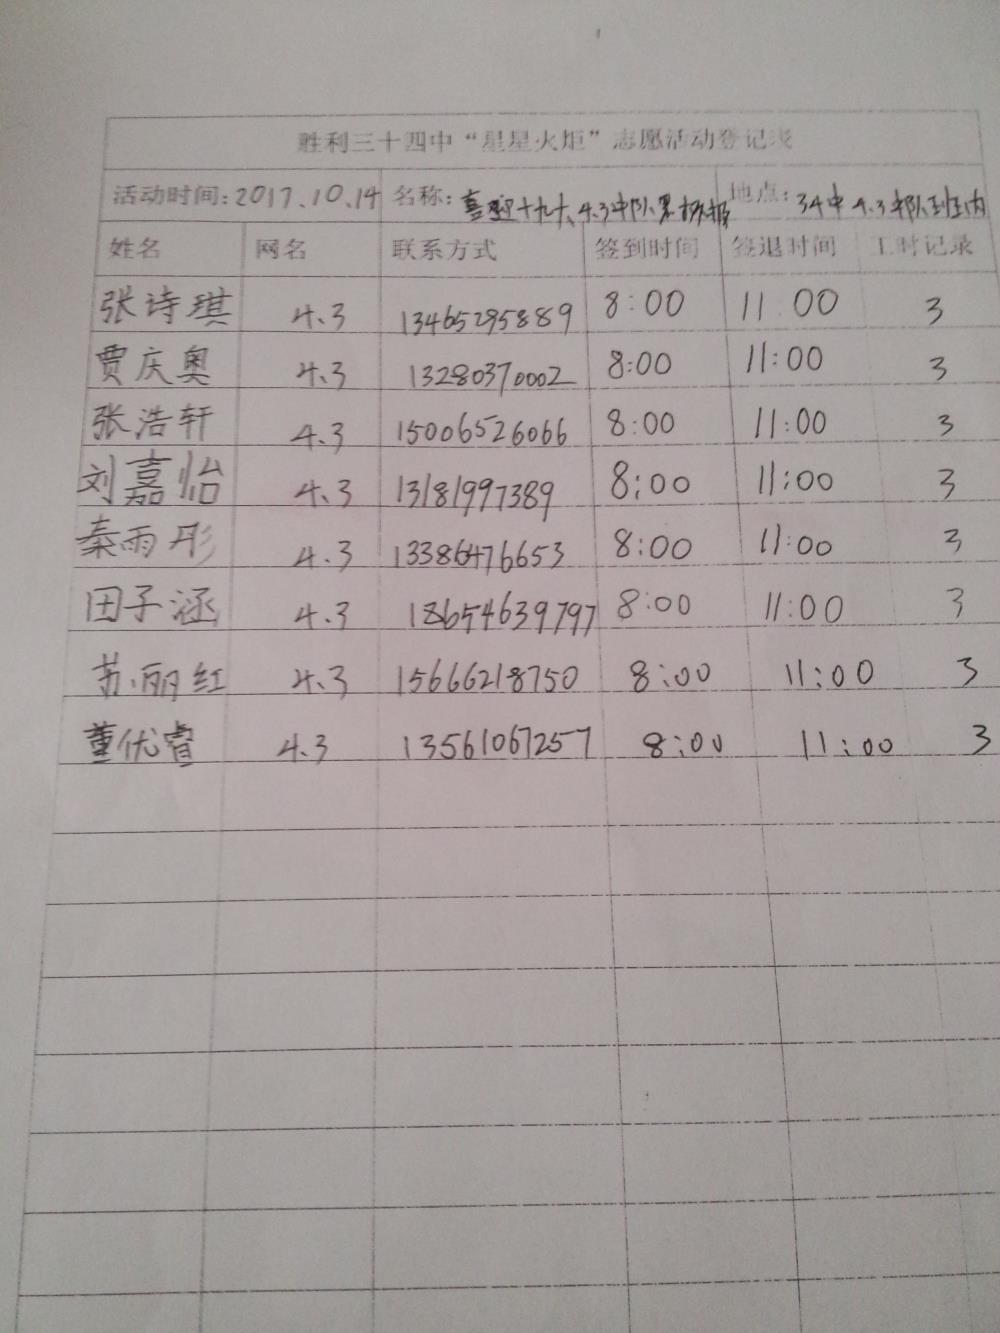 胜利三十四中“星星火炬”志愿活动登记表
活动时间:2017.10.14 名称:喜迎十九大、4.3中队黑板报 地点:34中4.3中队班内
姓名 网名 联系方式 签到时间 签退时间 工时记录
张诗琪 4.3 13465295889 8:00 11:00 3
贾庆奥 4.3 13280370002 8:00 11:00 3
张浩轩 4.3 15006526066 8:00 11:00 3
刘嘉怡 4.3 13181997389 8:00 11:00 3
秦雨彤 4.3 13386476653 8:00 11:00 3
田子涵 4.3 18654639797 8:00 11:00 3
苏丽红 4.3 15666218750 8:00 11:00 3
董优睿 4.3 13561067257 8:00 11:00 3